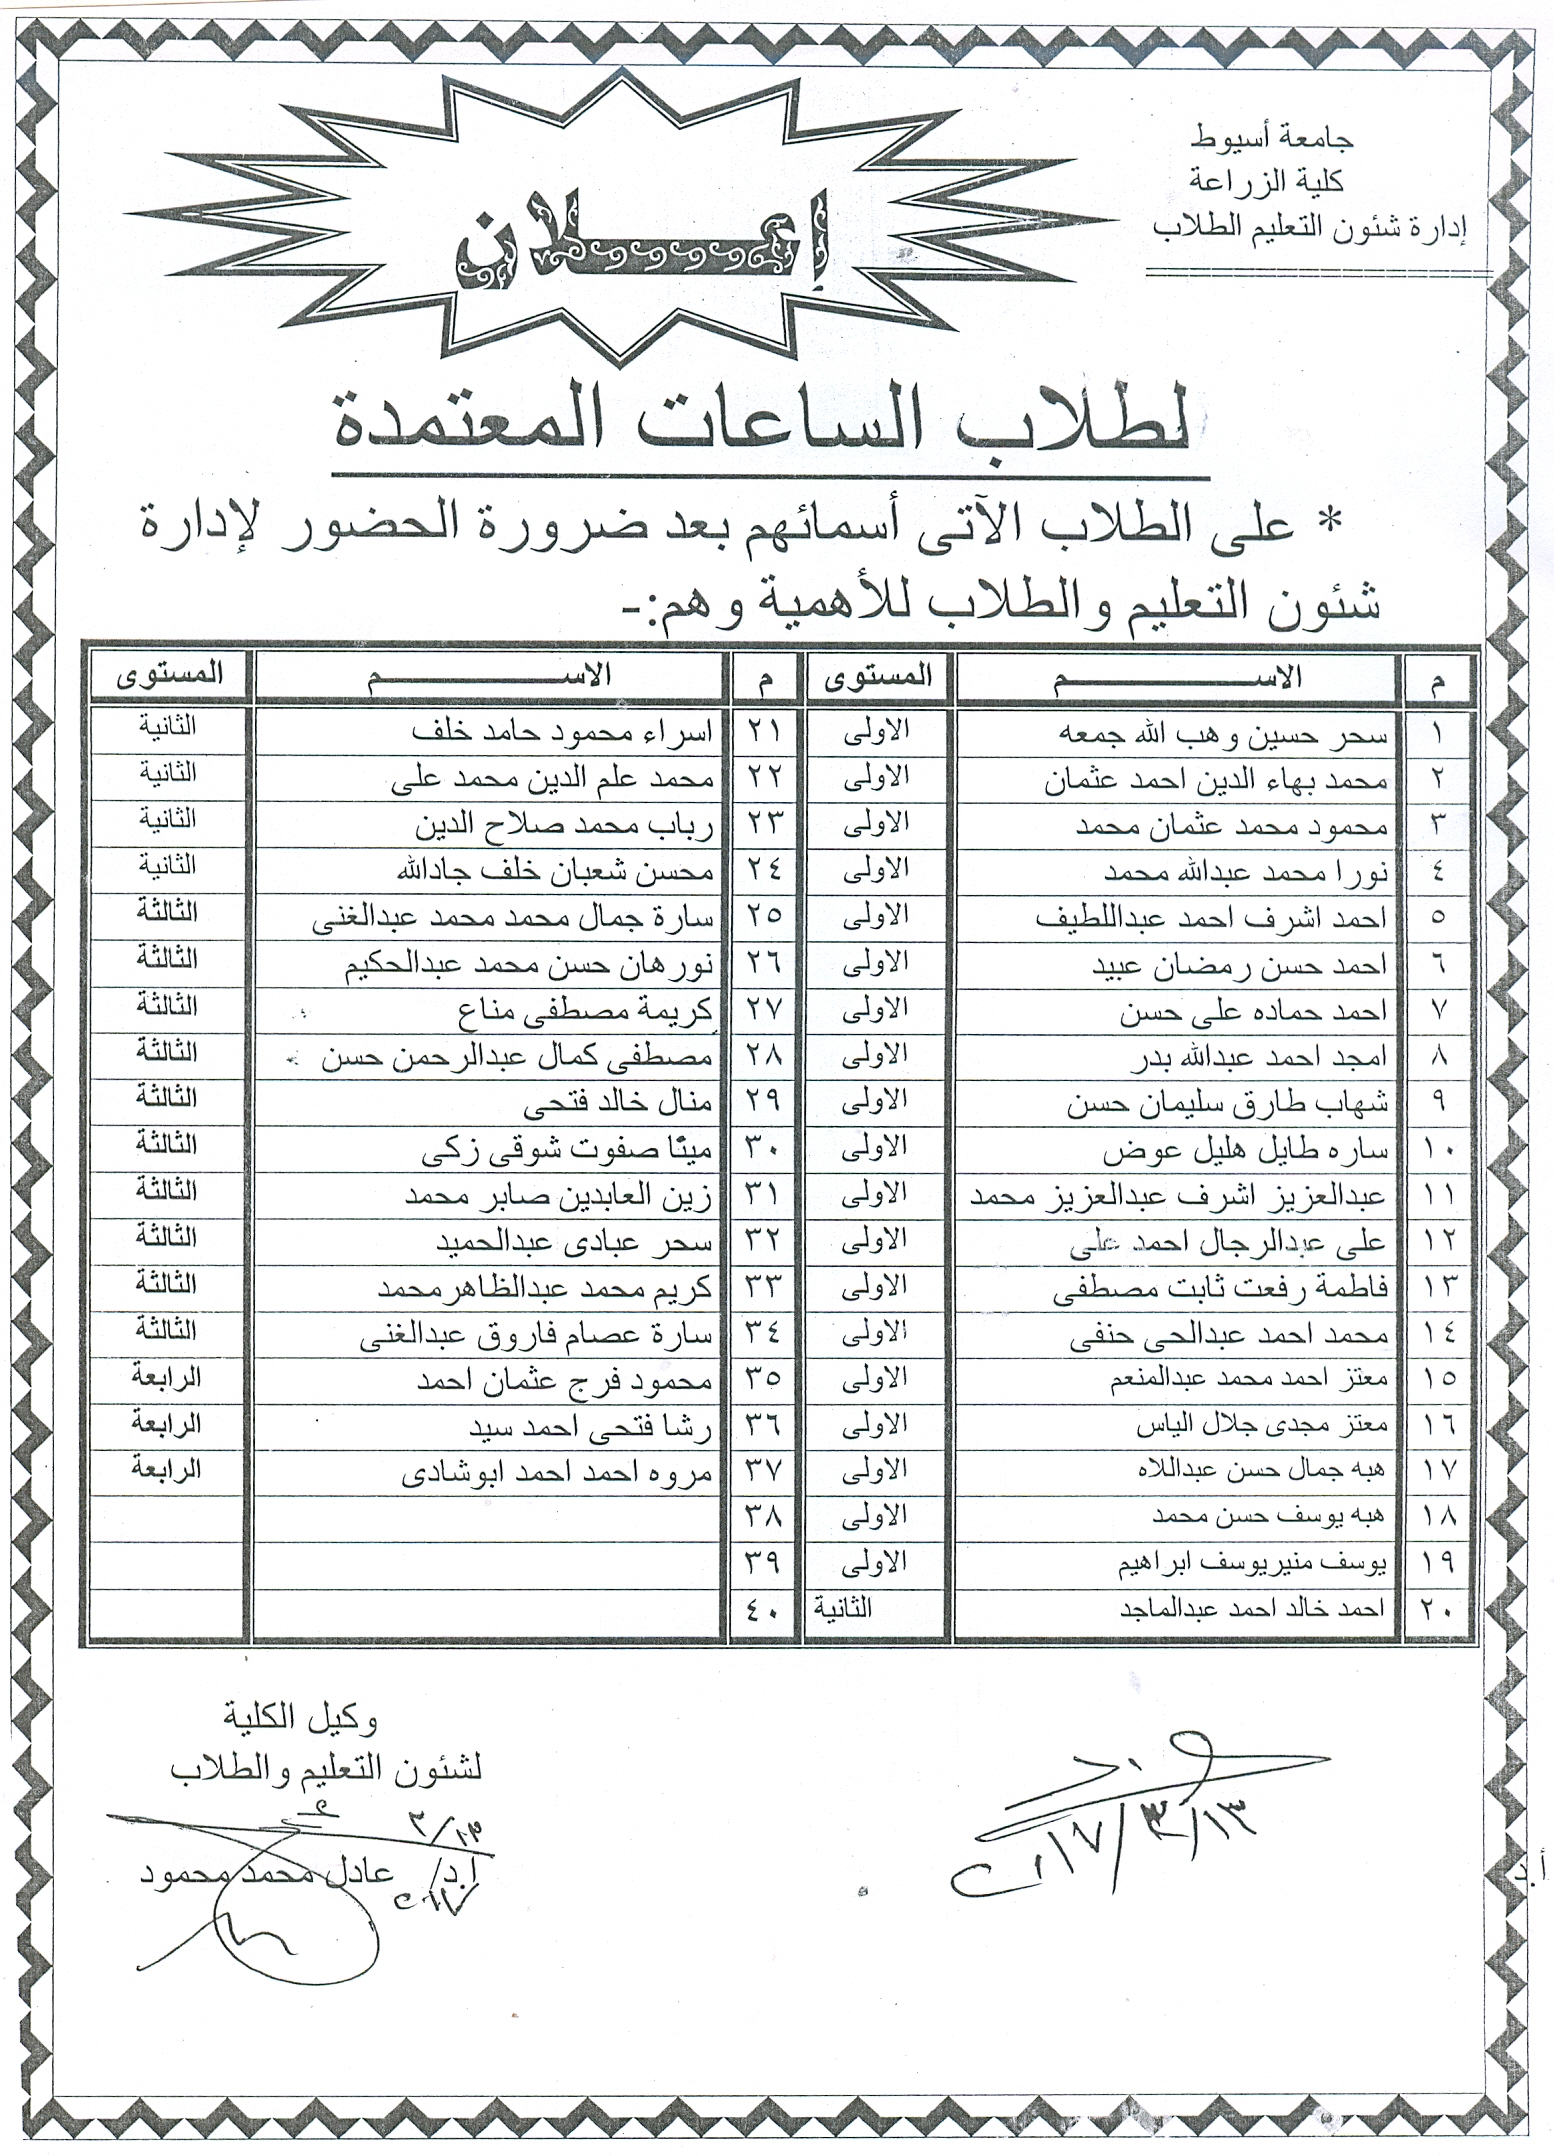 جامعة أسيوط
كلية الزراعة
إدارة شئون التعليم الطلاب
إعــلان
لطلاب الساعات المعتمدة
* على الطلاب الآتى أسمائهم بعد ضرورة الحضور لإدارة
شئون التعليم والطلاب للأهمية وهم:-
م الاســــــــم المستوى م الاســــــــم المستوى
١ سحر حسين وهب الله جمعه الاولى ٢١ اسراء محمود حامد خلف الثانية
٢ محمد بهاء الدين احمد عثمان الاولى ٢٢ محمد علم الدين محمد على الثانية
٣ محمود محمد عثمان محمد الاولى ٢٣ رباب محمد صلاح الدين الثانية
٤ نورا محمد عبدالله محمد الاولى ٢٤ محسن شعبان خلف جادالله الثانية
٥ احمد اشرف احمد عبداللطيف الاولى ٢٥ سارة جمال محمد محمد عبدالغنى الثالثة
٦ احمد حسن رمضان عبيد الاولى ٢٦ نورهان حسن محمد عبدالحكيم الثالثة
٧ احمد حماده على حسن الاولى ٢٧ كريمة مصطفى مناع الثالثة
٨ امجد احمد عبدالله بدر الاولى ٢٨ مصطفى كمال عبدالرحمن حسن الثالثة
٩ شهاب طارق سليمان حسن الاولى ٢٩ منال خالد فتحى الثالثة
١٠ ساره طايل هليل عوض الاولى ٣٠ مينا صفوت شوقى زكى الثالثة
١١ عبدالعزيز اشرف عبدالعزيز محمد الاولى ٣١ زين العابدين صابر محمد الثالثة
١٢ على عبدالرجال احمد على الاولى ٣٢ سحر عبادى عبدالحميد الثالثة
١٣ فاطمة رفعت ثابت مصطفى الاولى ٣٣ كريم محمد عبدالظاهرمحمد الثالثة
١٤ محمد احمد عبدالحى حنفى الاولى ٣٤ سارة عصام فاروق عبدالغنى الثالثة
١٥ معتز احمد محمد عبدالمنعم الاولى ٣٥ محمود فرج عثمان احمد الرابعة
١٦ معتز مجدى جلال الياس الاولى ٣٦ رشا فتحى احمد سيد الرابعة
١٧ هبه جمال حسن عبداللاه الاولى ٣٧ مروه احمد احمد ابوشادى الرابعة
١٨ هبه يوسف حسن محمد الاولى ٣٨
١٩ يوسف منيريوسف ابراهيم الاولى ٣٩
٢٠ احمد خالد احمد عبدالماجد الثانية ٤٠
وكيل الكلية
لشئون التعليم والطلاب
٣/١٣
ا.د/ عادل محمد محمود
٢٠١٧
٢٠١٧/٣/١٣
أ.د